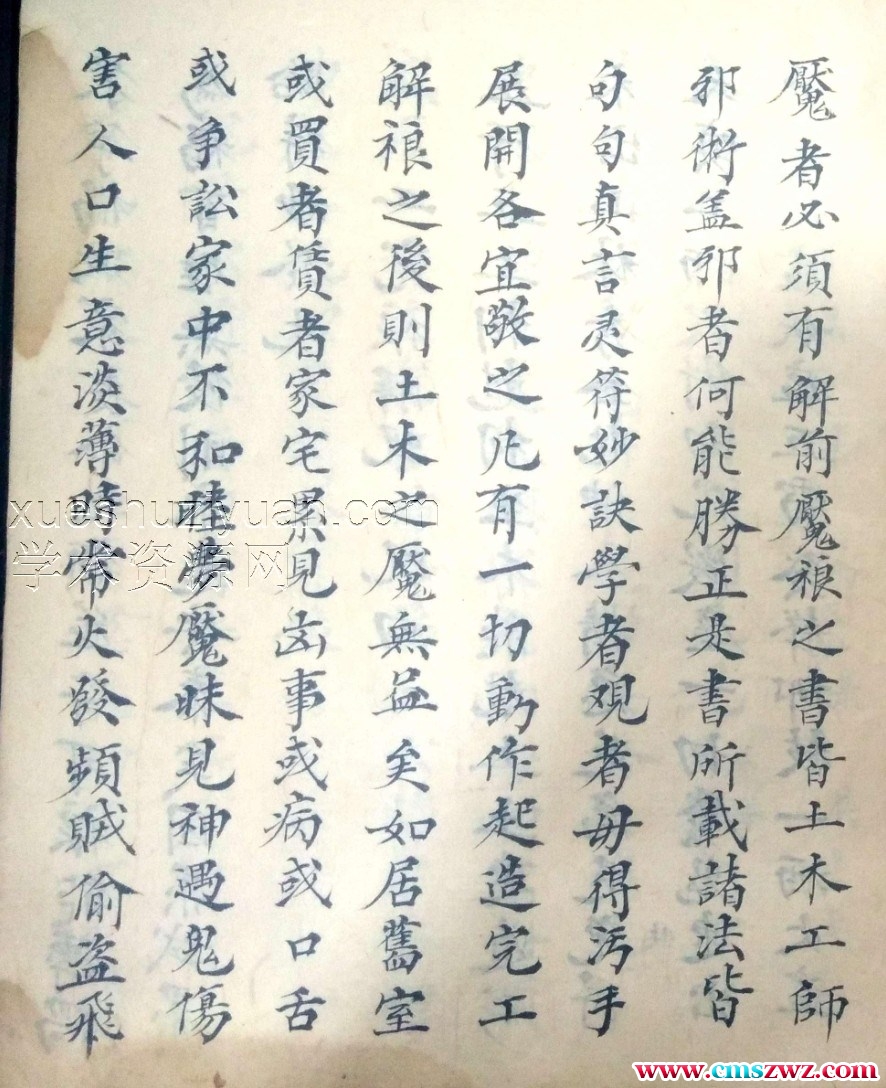 魘者必須有解前魘禳之書皆土木工師
邪術盖邪者何能勝正是書所載諸法皆
句句真言灵符妙訣學者观者毋得污手
展開各宜敬之凢有一切動作起造完工
解禳之後則土木之魘無益矣如居舊室
或買者賃者家宅累見凶事或病或口舌
或争訟家中不和睦夢魘昧見神遇鬼傷
害人口生意淡薄時常火發頻賊偷盗飛
xueshuziyuan.com
学术资源网
www.cmszwz.com